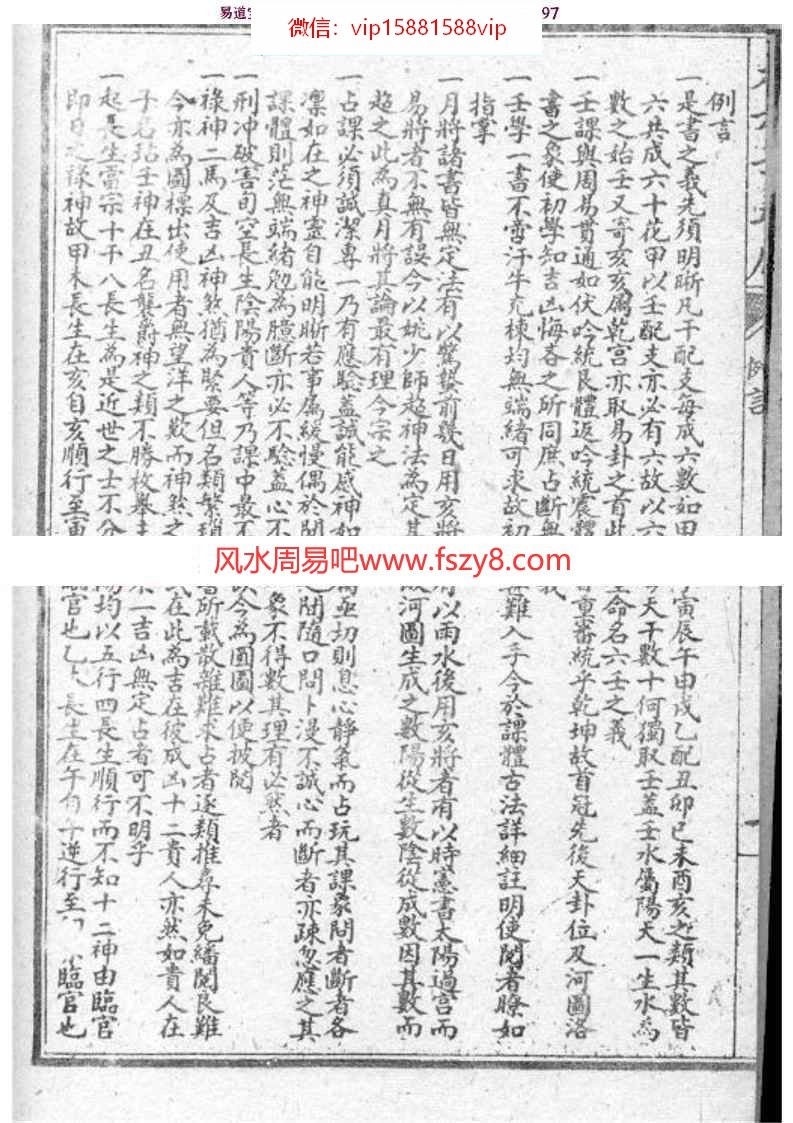 易道
97
微信：vip15881588vip
例言
例言
一是書之義先須明晰凡干配支每成六數如甲
寅辰午申戌乙配丑卯巳未酉亥之類其數皆
六共成六十花甲以壬配支亦必有六故以六
天干數十何獨取壬蓋壬水屬陽天一生水為
數之始壬又寄亥亥屬乾宮亦取易卦之首此
命名六壬之義
一壬課與周易貫通如伏吟統艮體返吟統震體
重審統乎乾坤故首冠先後天卦位及河圖洛
書之象使初學知吉凶悔吝之所同庶占斷無
一壬學一書不啻汗牛充棟均無端緒可求故初
難入手今於課體古法詳細註明使閱者瞭如
指掌
一月將諸書皆無定法有以驚蟄前幾日用亥將
以雨水後用亥將者有以時憲書太陽過宮而
易將者不無有誤今以姚少師超神法為定其
河圖生成之數陽從生數陰從成數因其數而
超之此為真月將其論最有理今宗之
一占課必須誠潔專一乃有應驗蓋誠能感神如
亟切則息心靜氣而占玩其課象問者斷者各
凜如在之神靈自能明晰若事屬緩慢偶於閒
隨口問卜漫不誠心而斷者亦疎忽應之其
課體則茫無端緒勉為臆斷亦必不驗蓋心不
象不得數其理有必然者
一刑冲破害旬空長生陰陽貴人等乃課中最不
今為圖圖以便披閱
一祿神二馬及吉凶神煞猶為緊要但名類繁瑣
所載散雜難求占者逐類推尋未免繙閱艮難
今亦為圖標出使用者無望洋之歎而神煞之
在此為吉在彼成凶十二貴人亦然如貴人在
子名玷壬神在丑名襲爵神之類不勝枚舉
一吉凶無定占者可不明乎
一起長生當宗十干八長生為是近世之士不分
均以五行四長生順行而不知十二神由臨官
即日之祿神故甲木長生在亥自亥順行至寅
臨官也乙木長生在午自午逆行至
臨官也
风水周易吧www.fszy8.com